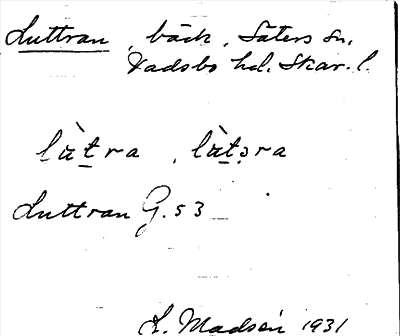 Luttran, bäck, Säters sn,
Vadsbo hd. Skar. l.
lùt̠ra, lùt̠əra
Luttran G. 53
L. Madsén 1931